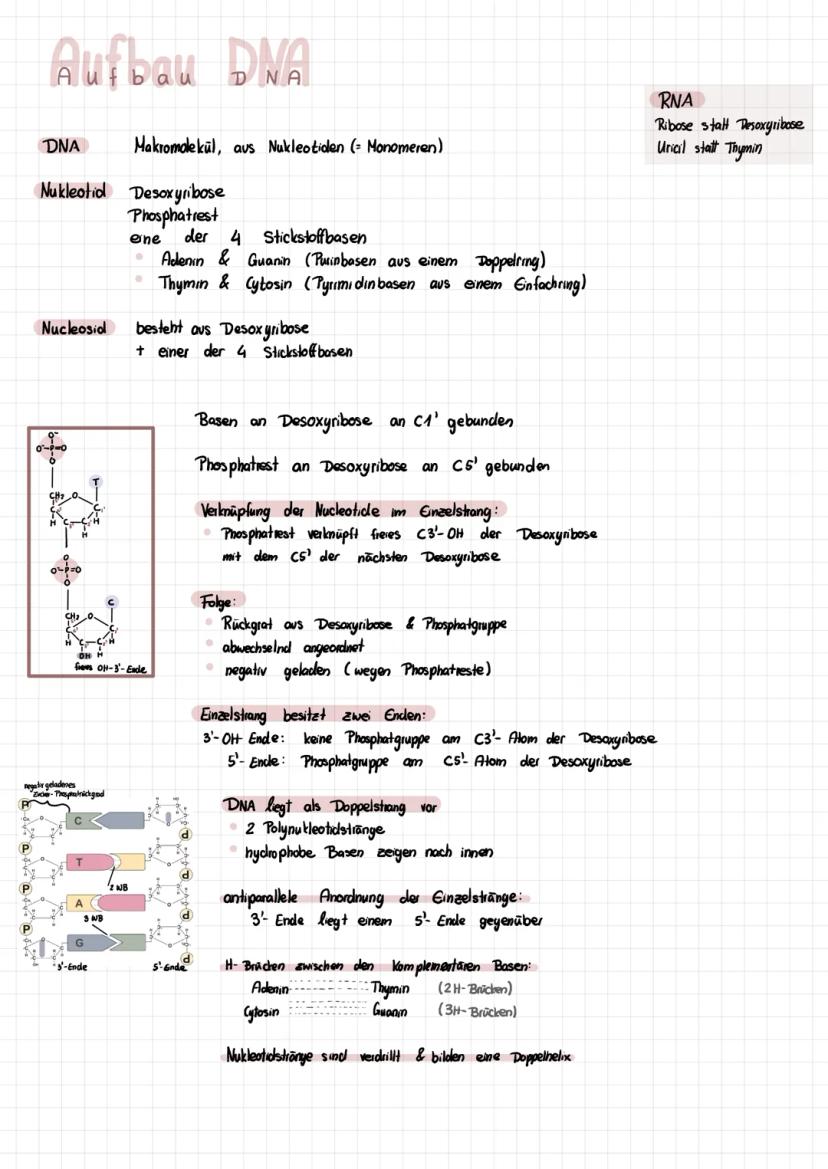 Aufbau DNA
Aufbau DNA
RNA
Ribose statt Desoxyribose
Uricil statt Thymin
DNA Makromolekül, aus Nukleotiden (= Monomeren)
Nukleotid Desoxyribose
Phosphatrest
eine der 4 Stickstoffbasen
Adenin & Guanin (Purinbasen aus einem Doppelring)
Thymin & Cytosin (Pyrimidinbasen aus einem Einfachring)
Nucleosid besteht aus Desoxyribose
+ einer der 4 Stickstoffbasen
Basen an Desoxyribose an C1' gebunden
Phosphatrest an Desoxyribose an C5' gebunden
Verknüpfung der Nucleotide im Einzelstrang:
Phosphatrest verknüpft freies C3'-OH der Desoxyribose
mit dem C5' der nächsten Desoxyribose
Folge:
Rückgrat aus Desoxyribose & Phosphatgruppe
abwechselnd angeordnet
negativ geladen (wegen Phosphatreste)
freies OH-3'-Ende
Einzelstrang besitzt zwei Enden:
3'-OH Ende: keine Phosphatgruppe am C3'-Atom der Desoxyribose
5'-Ende: Phosphatgruppe am C5'-Atom der Desoxyribose
negativ geladenes
Zucker-Phosphatrückgrad
P
C
P
T
2 WB
P
A
3 WB
P
G
3'-Ende 5'-Ende
DNA liegt als Doppelstrang vor
2 Polynukleotidstränge
hydrophobe Basen zeigen nach innen
antiparallele Anordnung der Einzelstränge:
3'-Ende liegt einem 5'-Ende gegenüber
H-Brücken zwischen den komplementären Basen:
Adenin Thymin (2H-Brücken)
Cytosin Guanin (3H-Brücken)
Nukleotidstränge sind verdrillt & bilden eine Doppelhelix